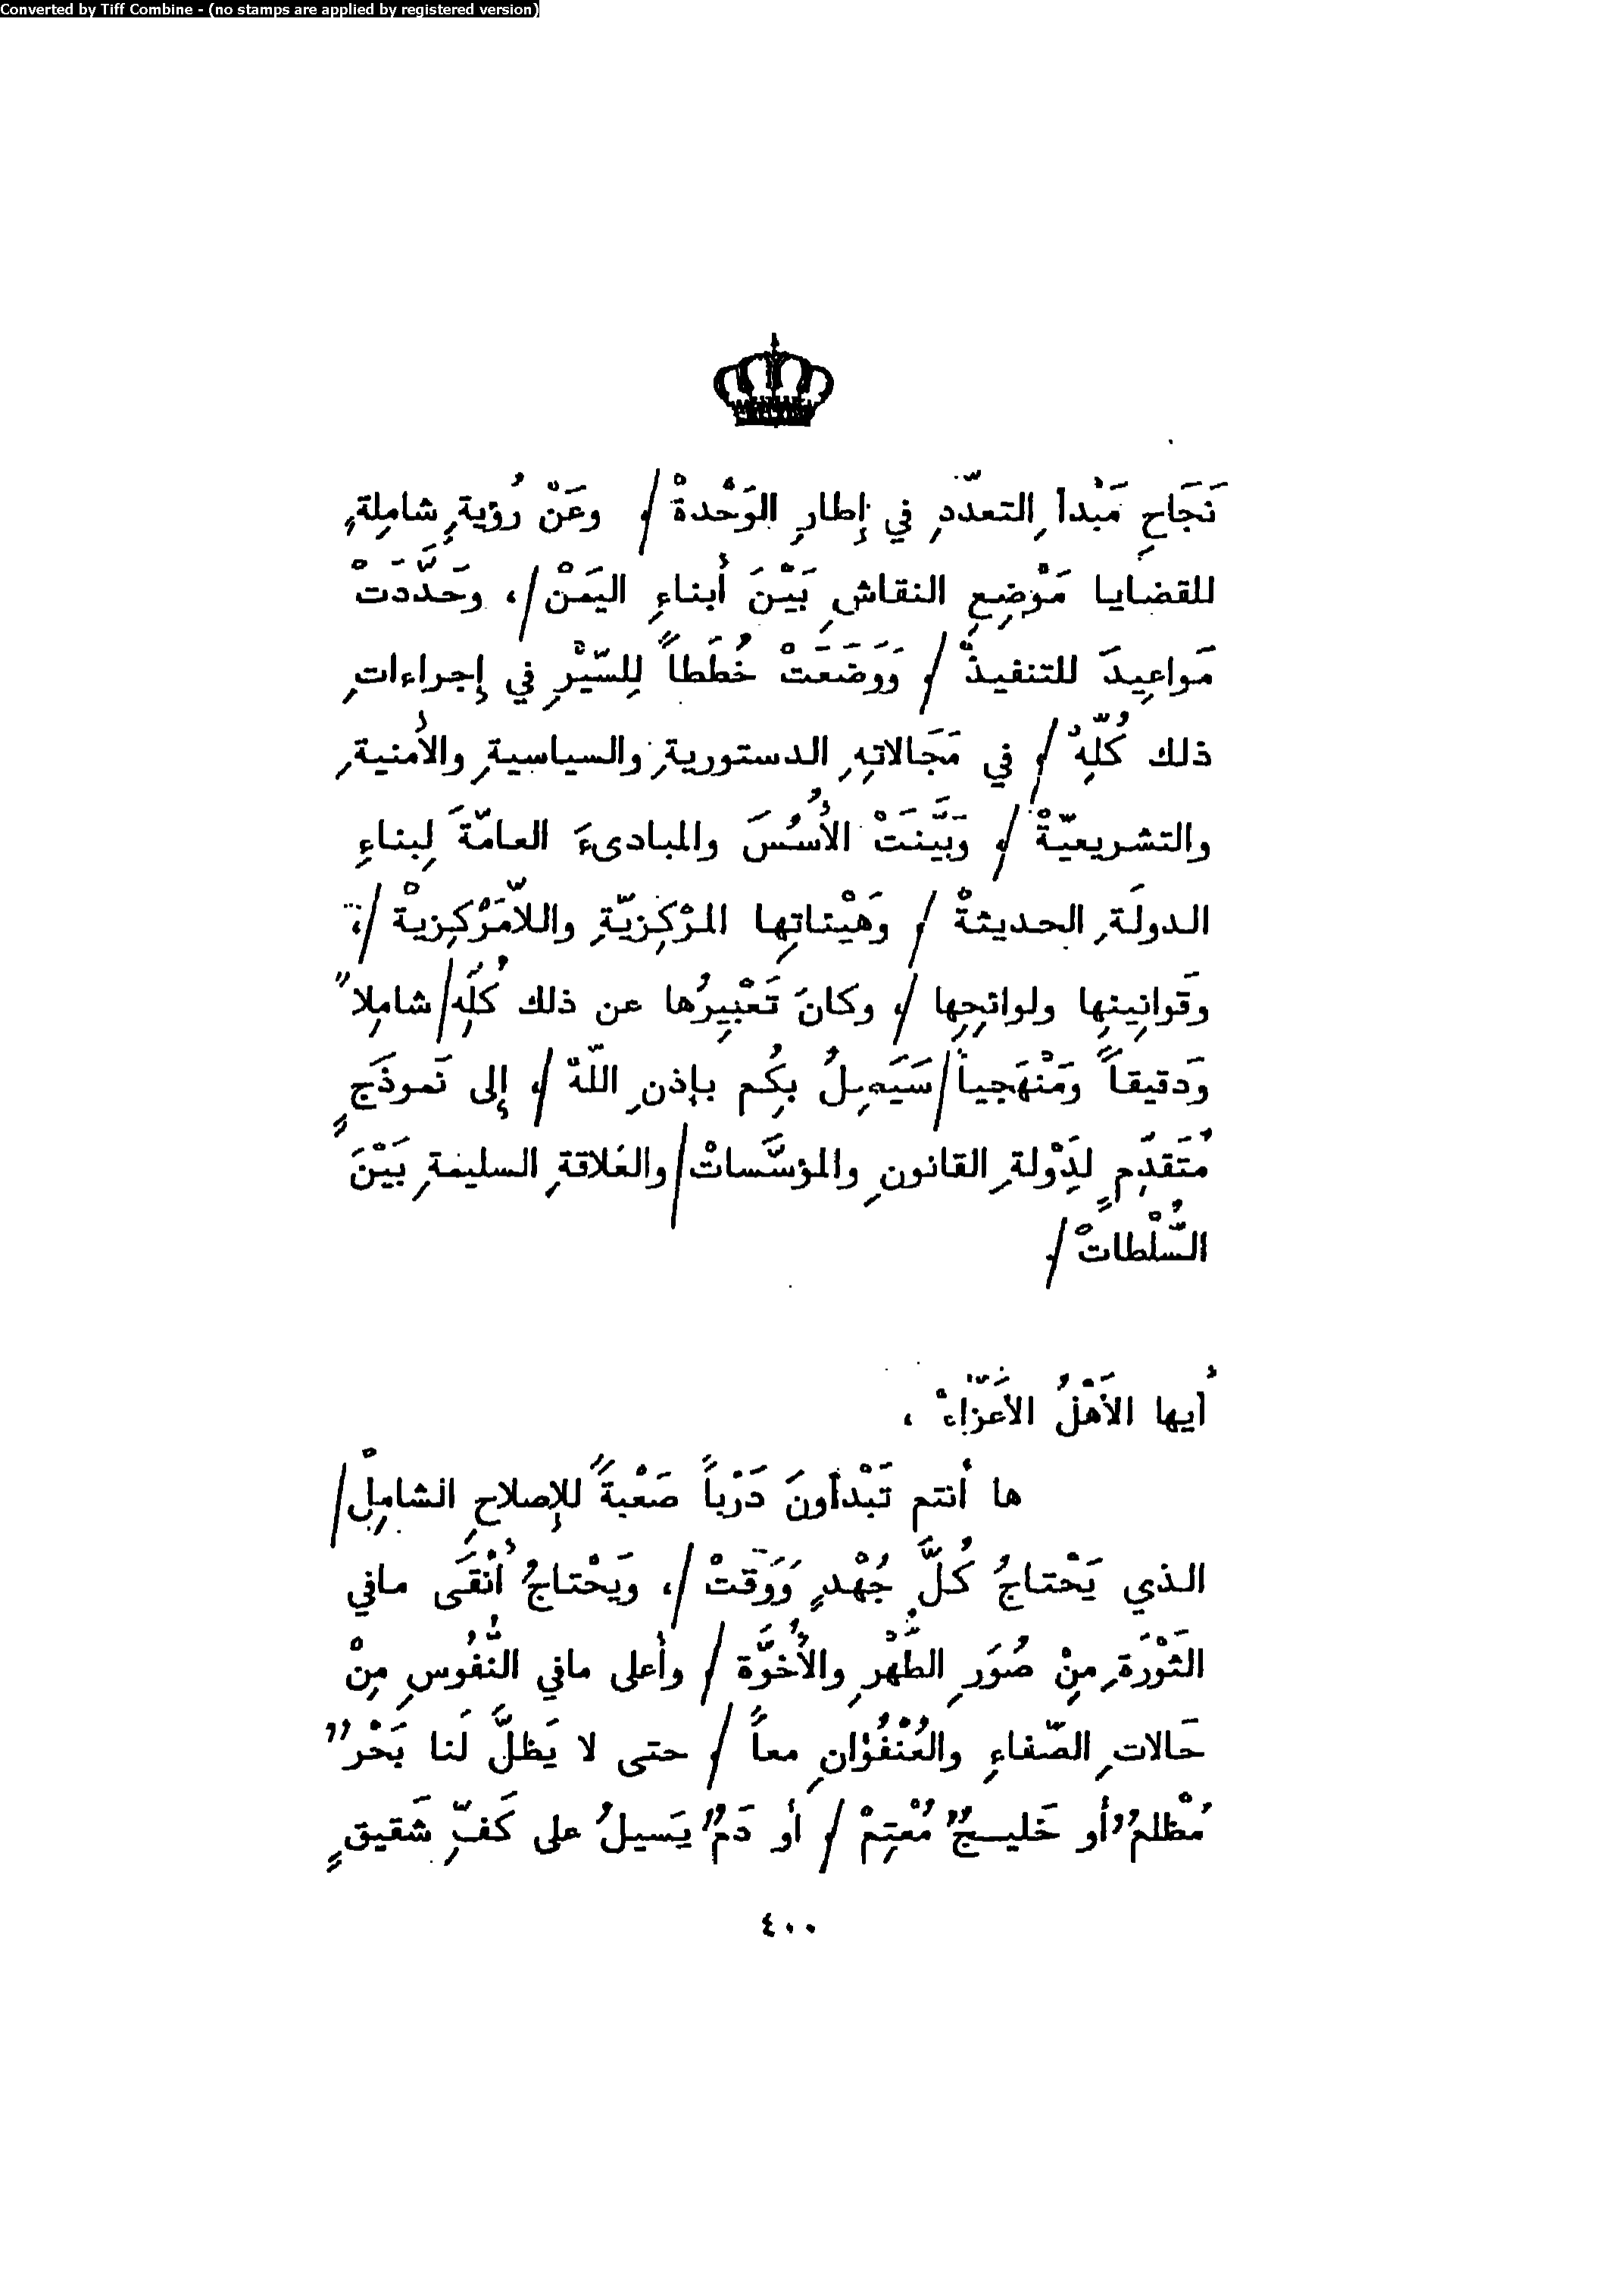 Converted by Tiff Combine - (no stamps are applied by registered version)
نَجَاحِ مَبْدأِ التعدّدِ في إطارِ الوَحْدةْ / ، وعَنْ رُؤيةٍ شامِلةٍ
للقضايا مَوْضِعِ النقاشِ بَيْنَ أبناءِ اليَمَنْ / ، وحَدَّدَتْ
مَواعِيدَ للتنفيذْ / ، وَوَضَعَتْ خُطَطاً لِلسَّيْرِ في إجراءاتِ
ذلك كُلّهِ / ، في مَجَالاتِهِ الدستوريةِ والسياسيةِ والأمنيةِ
والتشريعيّةْ / ، وَبَيَّنَتْ الأُسُسَ والمبادىءَ العامّةَ لِبناءِ
الدولَةِ الحديثةْ / ، وَهَيْئاتِها المرْكَزِيّةِ واللاّمَرْكَزِيةْ / ،
وَقوانِينِها ولوائحِها / ، وكانَ تَعْبِيرُها عن ذلك كُلِّهِ / شامِلاً
وَدقيقاً وَمَنْهَجياً / سَيَصِلُ بِكُم بإذنِ اللّهْ / ، إلى نَموذَجٍ
مُتَقدِّمٍ لِدَوْلةِ القانونِ والمؤسَّساتْ / والعَلاقةِ السليمةِ بَيْنَ
السُّلْطاتْ / .
أيها الأَهْلُ الأعزّاءْ ،
ها أنتم تَبْدأونَ دَرْباً صَعْبةً للإصلاحِ الشامِلْ /
الذي يَحْتاجُ كُلَّ جُهْدٍ وَوَقتْ / ، وَيَحْتاجُ أنْقَى مافي
الثَوْرَةِ مِنْ صُوَرِ الطُّهْرِ والأُخوَّة / ، وأعلى مافي النُّفُوسِ مِنْ
حَالاتِ الصّفاءِ والعُنْفُوَانِ معاً / ، حتى لا يَظلَّ لَنا بَحْرٌ
مُظْلمٌ أو خَليـجٌ مُعْتِمْ / ، أو دَمٌ يَسيلُ على كَفِّ شَقيقٍ
٤٠٠